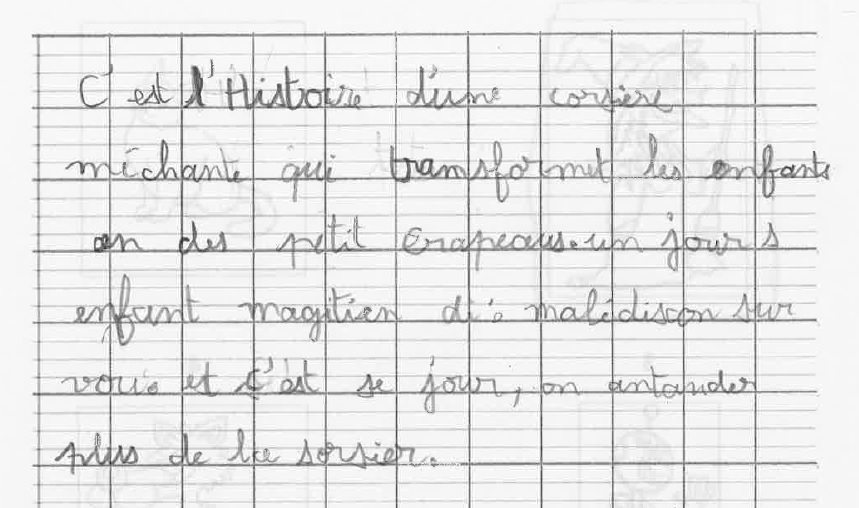 C'est l'Histoire d'une corsière
méchante qui transformet les enfants
en des petit crapeaus. un jour s
enfant magitien di : malédiscon sur
vous et c'est se jour, on antander
plus de la sorsier.